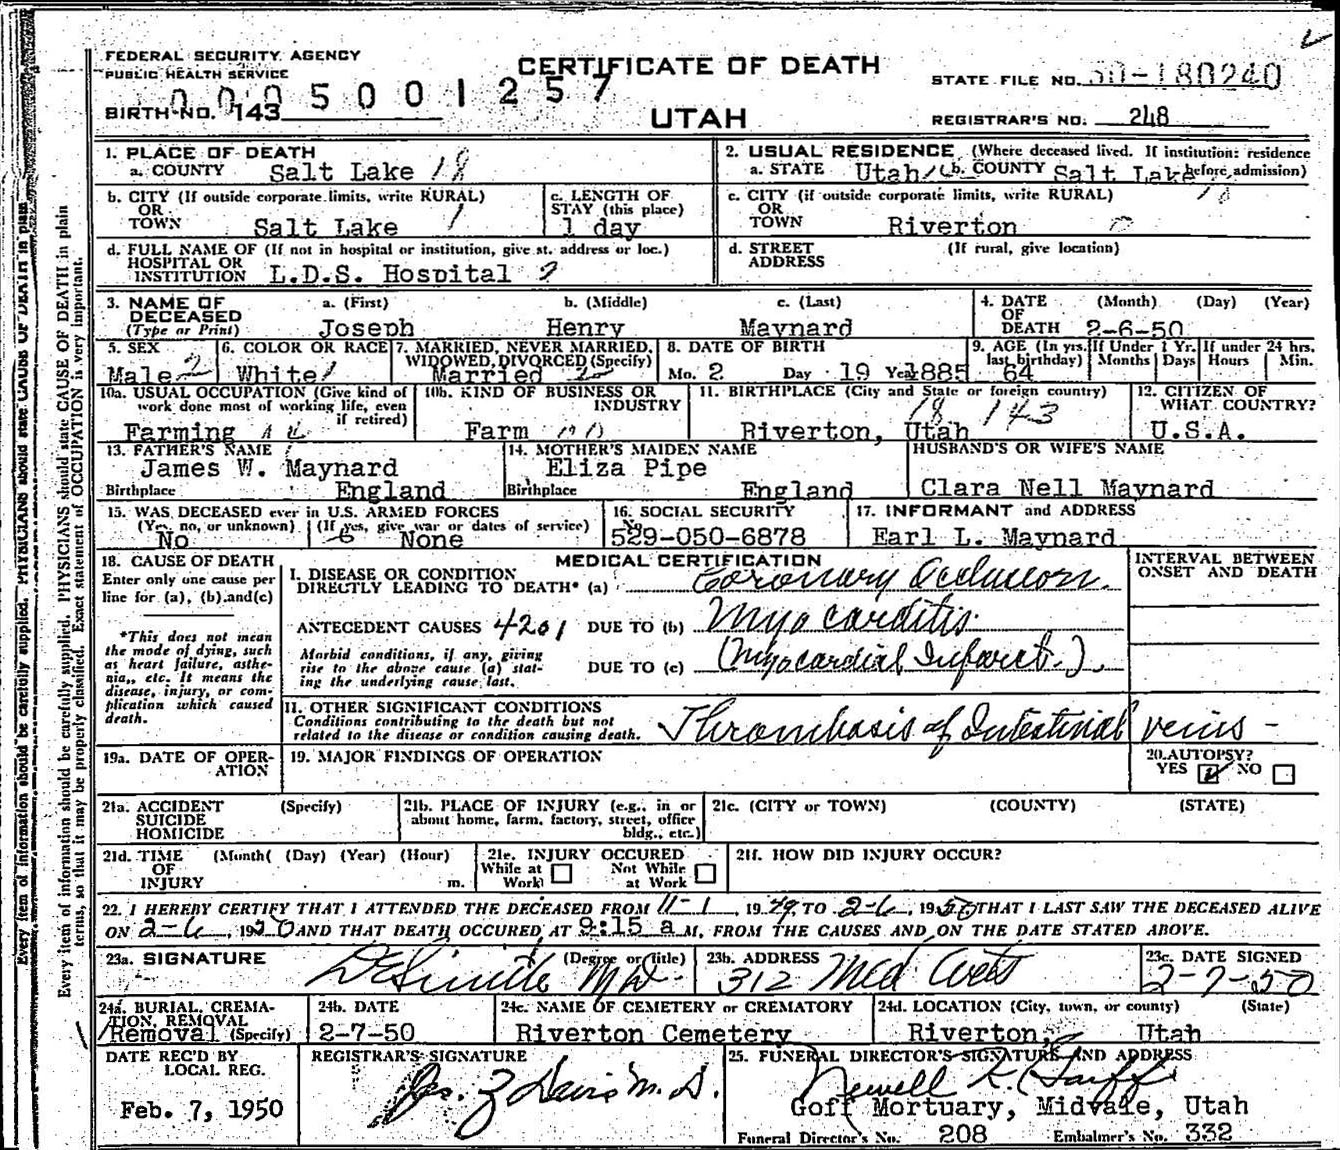 FEDERAL SECURITY AGENCY
PUBLIC HEALTH SERVICE
0005001257
BIRTH NO. 143
CERTIFICATE OF DEATH
UTAH
STATE FILE NO. 50-180240
REGISTRAR'S NO. 248
1. PLACE OF DEATH
a. COUNTY Salt Lake 18
2. USUAL RESIDENCE (Where deceased lived. If institution: residence before admission)
a. STATE Utah b. COUNTY Salt Lake 18
b. CITY (If outside corporate limits, write RURAL)
OR
TOWN Salt Lake 1
c. LENGTH OF
STAY (this place)
1 day
c. CITY (if outside corporate limits, write RURAL)
OR
TOWN Riverton
d. FULL NAME OF (If not in hospital or institution, give st. address or loc.)
HOSPITAL OR
INSTITUTION L.D.S. Hospital 2
d. STREET (If rural, give location)
ADDRESS
3. NAME OF
DECEASED
(Type or Print)
a. (First) b. (Middle) c. (Last)
Joseph Henry Maynard
4. DATE (Month) (Day) (Year)
OF
DEATH 2-6-50
5. SEX
Male 2
6. COLOR OR RACE
White 1
7. MARRIED, NEVER MARRIED,
WIDOWED, DIVORCED (Specify)
Married 2
8. DATE OF BIRTH
Mo. 2 Day 19 Year 1885
9. AGE (In yrs. last birthday)
64
If Under 1 Yr.
Months Days
If under 24 hrs.
Hours Min.
10a. USUAL OCCUPATION (Give kind of
work done most of working life, even
if retired)
Farming
10b. KIND OF BUSINESS OR
INDUSTRY
Farm
11. BIRTHPLACE (City and State or foreign country)
18 143
Riverton, Utah
12. CITIZEN OF
WHAT COUNTRY?
U.S.A.
13. FATHER'S NAME
James W. Maynard
Birthplace England
14. MOTHER'S MAIDEN NAME
Eliza Pipe
Birthplace England
HUSBAND'S OR WIFE'S NAME
Clara Nell Maynard
15. WAS DECEASED ever in U.S. ARMED FORCES
(Yes, no, or unknown) (If yes, give war or dates of service)
No 6 None
16. SOCIAL SECURITY
No.
529-050-6878
17. INFORMANT and ADDRESS
Earl L. Maynard
18. CAUSE OF DEATH
Enter only one cause per
line for (a), (b), and (c)
*This does not mean
the mode of dying, such
as heart failure, asthe-
nia, etc. It means the
disease, injury, or com-
plication which caused
death.
MEDICAL CERTIFICATION
I. DISEASE OR CONDITION
DIRECTLY LEADING TO DEATH* (a) Coronary Occlusion.
ANTECEDENT CAUSES 4201 DUE TO (b) Myocarditis.
Morbid conditions, if any, giving
rise to the above cause (a) stat-
ing the underlying cause last.
DUE TO (c) (Myocardial Infarct.)
INTERVAL BETWEEN
ONSET AND DEATH
II. OTHER SIGNIFICANT CONDITIONS
Conditions contributing to the death but not
related to the disease or condition causing death.
Thrombosis of Intestinal veins -
19a. DATE OF OPER-
ATION
19. MAJOR FINDINGS OF OPERATION
20. AUTOPSY?
YES ☑ NO ☐
21a. ACCIDENT (Specify)
SUICIDE
HOMICIDE
21b. PLACE OF INJURY (e.g., in or
about home, farm, factory, street, office
bldg., etc.)
21c. (CITY or TOWN) (COUNTY) (STATE)
21d. TIME (Month( (Day) (Year) (Hour)
OF
INJURY m.
21e. INJURY OCCURED
While at Work ☐ Not While at Work ☐
21f. HOW DID INJURY OCCUR?
22. I HEREBY CERTIFY THAT I ATTENDED THE DECEASED FROM 11-1, 1949 TO 2-6, 1950 THAT I LAST SAW THE DECEASED ALIVE
ON 2-6, 1950 AND THAT DEATH OCCURED AT 9:15 a M., FROM THE CAUSES AND ON THE DATE STATED ABOVE.
23a. SIGNATURE (Degree or title)
MD
23b. ADDRESS
312 Med Arts
23c. DATE SIGNED
2-7-50
24a. BURIAL, CREMA-
TION, REMOVAL
Removal (Specify)
24b. DATE
2-7-50
24c. NAME OF CEMETERY or CREMATORY
Riverton Cemetery
24d. LOCATION (City, town, or county) (State)
Riverton, Utah
DATE REC'D BY
LOCAL REG.
Feb. 7, 1950
REGISTRAR'S SIGNATURE
Jos. Z Davis M.D.
25. FUNERAL DIRECTOR'S SIGNATURE AND ADDRESS
Newell K Goff
Goff Mortuary, Midvale, Utah
Funeral Director's No. 208 Embalmer's No. 332
Every item of information should be carefully supplied. PHYSICIANS should state CAUSE OF DEATH in plain
Every item of information should be carefully supplied. PHYSICIANS should state CAUSE OF DEATH in plain
terms, so that it may be properly classified. Exact statement of OCCUPATION is very important.